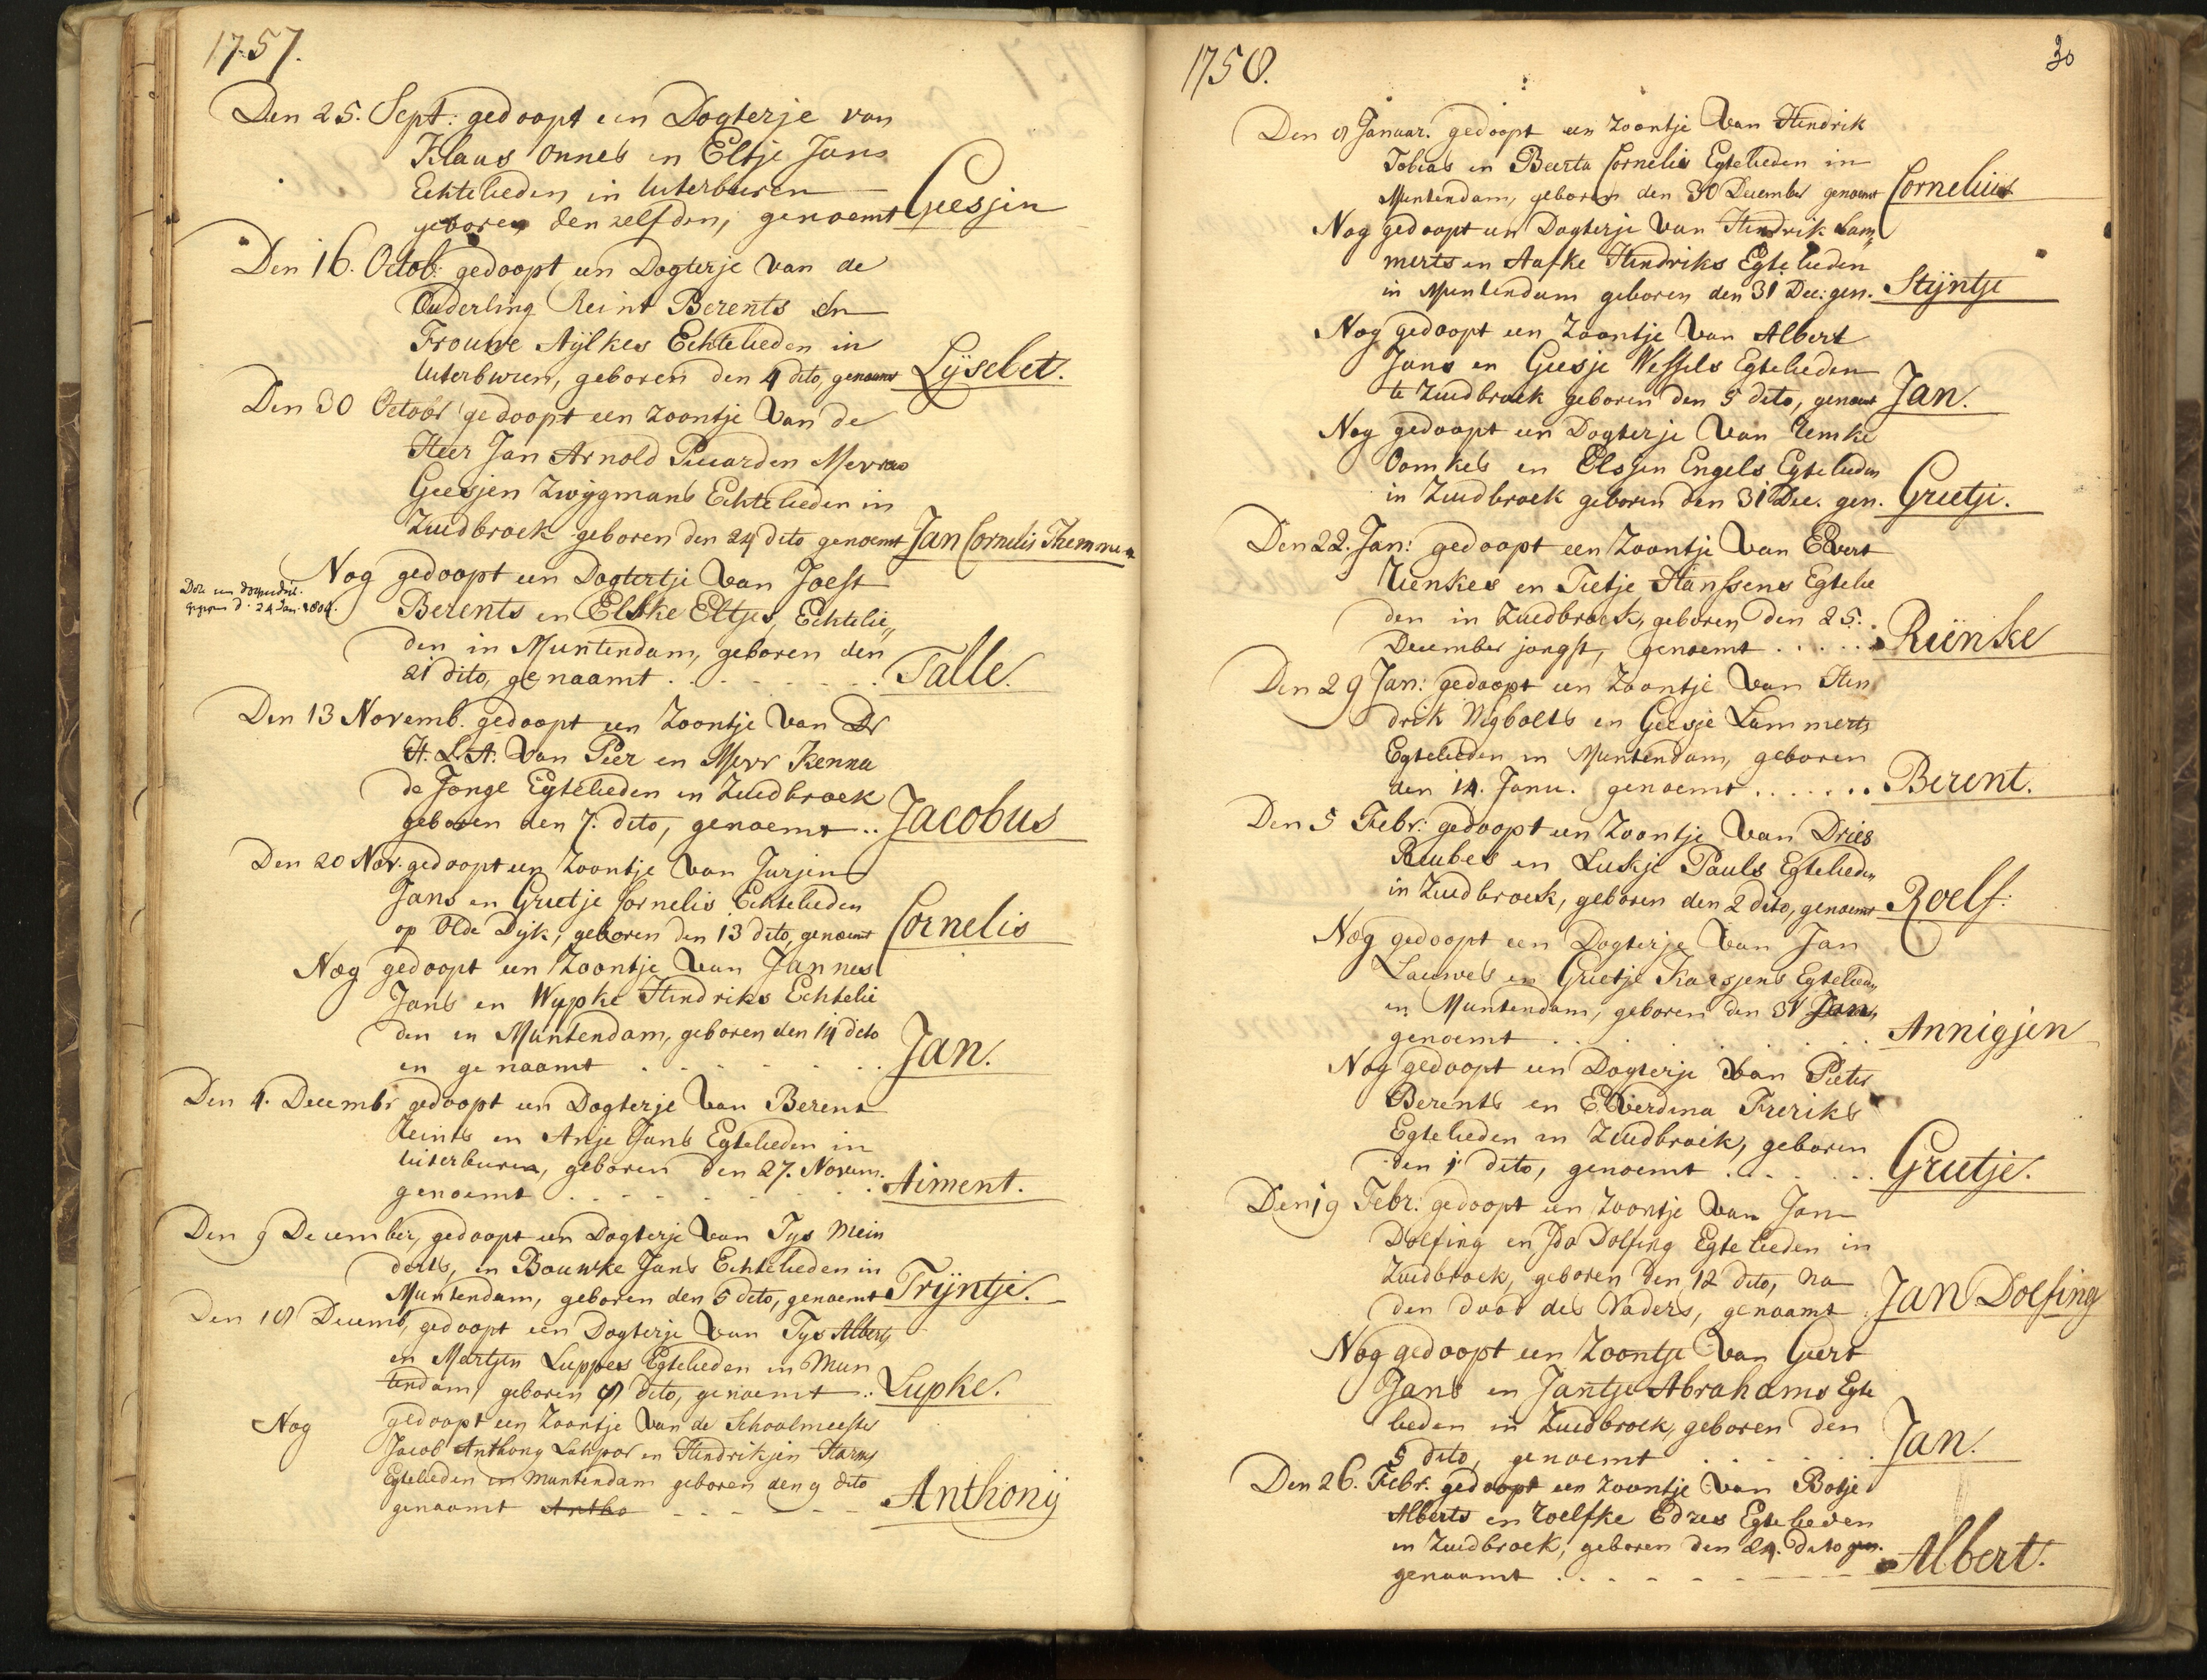 1757.
Den 25. Sept: gedoopt een Dogterje van
Klaas Onnes en Eltje Jans
Echtelieden in Uiterburen
geboren den zelfden, genoemt Geesjen
Den 16. Octob: gedoopt een Dogterje van de
Ouderling Reint Berents en
Frouwe Aijlkes Echtelieden in
Uiterburen, geboren den 4 dito, genoemt Lijsebet.
Den 30 Octobr gedoopt een zoontje van de
Heer Jan Arnold Mevrou
Geesjen Zwijgmans Echtelieden in
Zuidbroek geboren den 24 dito genoemt Jan Cornelis Themmen
Nog gedoopt een Dogtertje van Joest
Berents en Elske Eltjes, Echtelie„
den in Muntendam, geboren den
21 dito, genaamt . . . . . . . Talle.
d. 24 Jan. 1804.
Den 13 Novemb. gedoopt een Zoontje van Dr
H. L. A. van Peer en Mevr Kenna
de Jonge Egtelieden in Zuidbroek
geboren den 7. dito, genoemt .. Jacobus
Den 20 Nov. gedoopt een Zoontje van Jurjen
Jans en Grietje Cornelis Echtelieden
op Olde Dijk, geboren den 13 dito, genoemt Cornelis
Nog gedoopt een Zoontje van Jannes
Jans en Wypke Hindriks Echtelie
den in Muntendam, geboren den 14 dito
en genaamt . . . . . . . Jan.
Den 4. Decembr gedoopt een Dogterje van Berent
Reints en Anje Jans Egtelieden in
Uiterburen, geboren den 27. Novem.
genoemt . . . . . . . Aiment.
Den 9 December, gedoopt een Dogterje van Tys Mein
derts, en Bouwke Jans Echtelieden in
Muntendam, geboren den 5 dito, genoemt Trijntje.
Den 18 Decemb, gedoopt een Dogterje van Tys Alberts
en Martjen Luppes Egtelieden in Mun
tendam, geboren 8 dito, genoemt .. Lupke.
Nog gedoopt een Zoontje van de Schoolmeester
Jacob Anthony en Hindrikjen Harms
Egtelieden in Muntendam geboren den 9 dito
genaamt Antho - - - - - - Anthonij
1758.
30
Den 8 Januar. gedoopt een zoontje van Hindrik
Tobias en Beerta Cornelis Egtelieden in
Muntendam, geboren den 30 December genoemt Cornelius
Nog gedoopt een Dogterje van Hindrik Lam„
merts en Aafke Hindriks Egtelieden
in Muntendam geboren den 31 Dec: gen. Stijntje
Nog gedoopt een Zoontje van Albert
Jans en Geesje Wessels Egtelieden
te Zuidbroek geboren den 5 dito, genoemt Jan.
Nog gedoopt een Dogterje van Remke
Oomkes en Elsjen Engels Egtelieden
in Zuidbroek geboren den 31 Dec. gen. Grietje.
Den 22. Jan: gedoopt een Zoontje van Evert
Uunkes en Tietje Hanssens Egtelie
den in Zuidbroek, geboren den 25.
December jongst, genoemt . . . . . Riënke
Den 29 Jan: gedoopt een Zoontje van Hen
drik Nigbolts en Geesje Lammerts
Egtelieden in Muntendam, geboren
den 14. Janu. genoemt . . . . . . Berent.
Den 5 Febr: gedoopt een Zoontje van Dries
Ruubes en Luskje Pauls Egtelieden
in Zuidbroek, geboren den 2 dito, genoemt Roelf.
Nog gedoopt een Dogterje van Jan
Lauwes en Grietje Karsjens Egtelied„
in Muntendam, geboren den 31 Jan„
genoemt . . . . . . . Annigjen
Nog gedoopt een Dogterje van Pieter
Berents en Everdina Freriks
Egtelieden in Zuidbroek, geboren
den 1 dito, genoemt . . . . . . Grietje.
Den 19 Febr: gedoopt een Zoontje van Jan
Dolfing en Ida Dolfing Egtelieden in
Zuidbroek, geboren den 12 dito, na
den dood des Vaders, genaamt Jan Dolfing
Nog gedoopt een Zoontje van Geert
Jans en Jantje Abrahams Egte
lieden in Zuidbroek, geboren den
5 dito, genoemt . . . . . . Jan.
Den 26. Febr. gedoopt een Zoontje van Botje
Alberts en Roelfke Edzes Egtelieden
in Zuidbroek, geboren den 24. dito gen.
genaamt . . . - - - - - Albert.